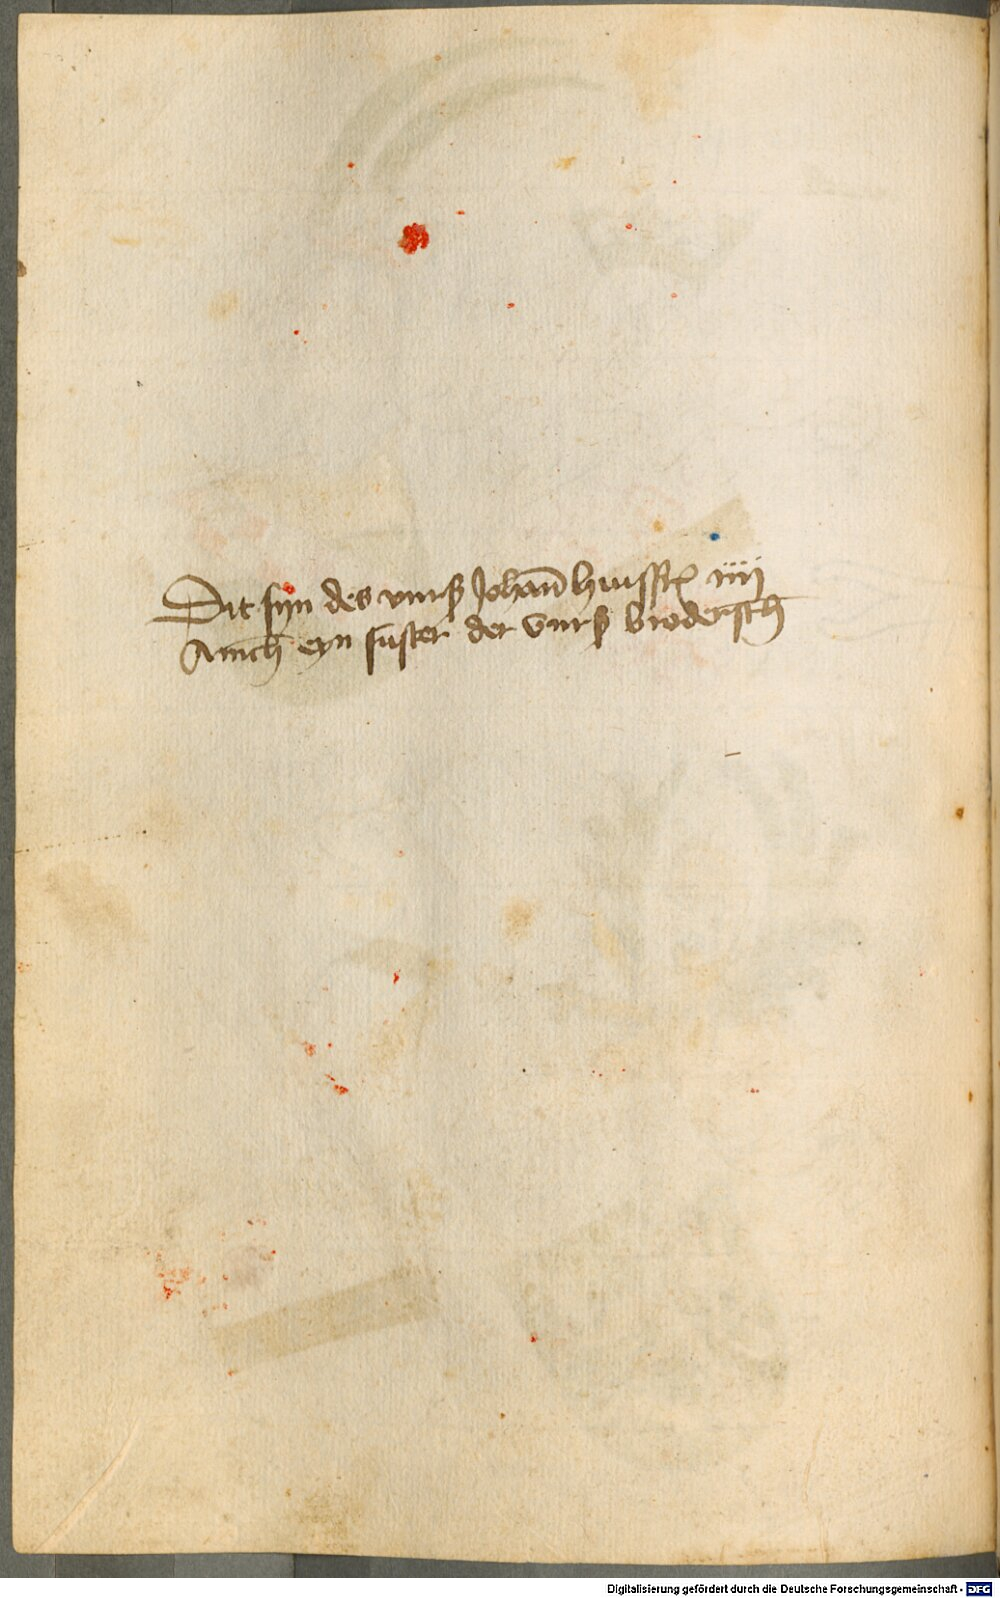 Dit syn des vurß Johan̄ huysfr iiij
Auch eyn suster der vurß brodersch
Digitalisierung gefördert durch die Deutsche Forschungsgemeinschaft - DFG